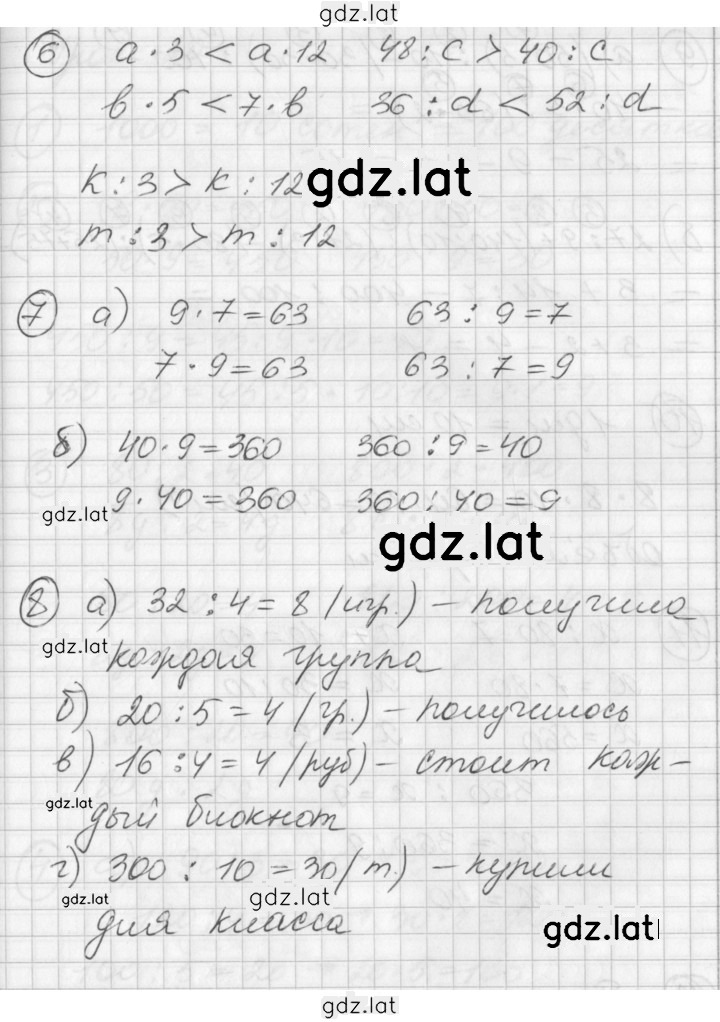 gdz.lat
6 a · 3 < a · 12 48 : c > 40 : c
b · 5 < 7 · b 36 : d < 52 : d
k : 3 > k : 12
gdz.lat
m : 3 > m : 12
7 а) 9 · 7 = 63 63 : 9 = 7
7 · 9 = 63 63 : 7 = 9
б) 40 · 9 = 360 360 : 9 = 40
9 · 40 = 360 360 : 40 = 9
gdz.lat
gdz.lat
8 а) 32 : 4 = 8 (игр.) – получила
gdz.lat
каждая группа
б) 20 : 5 = 4 (гр.) – получилось
в) 16 : 4 = 4 (руб) – стоит каж-
gdz.lat
дый блокнот
г) 300 : 10 = 30 (т.) – купили
gdz.lat
gdz.lat
для класса
gdz.lat
gdz.lat